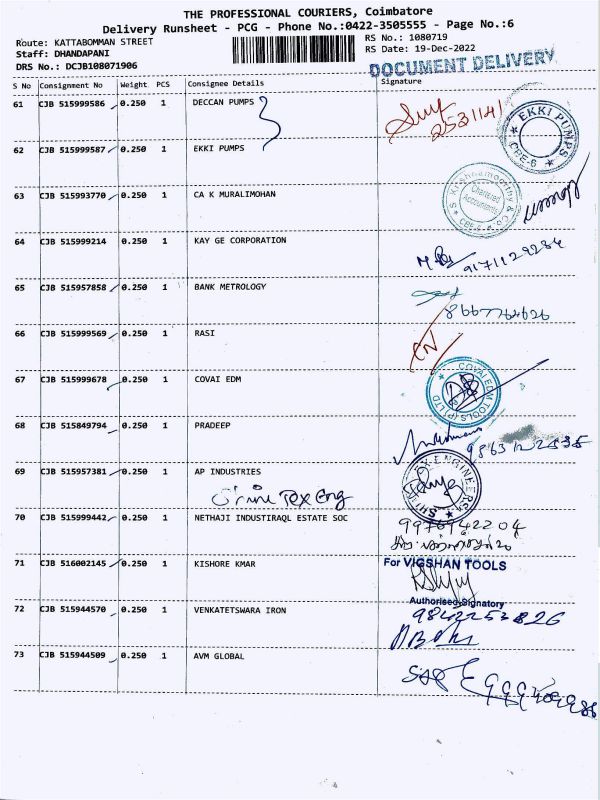 THE PROFESSIONAL COURIERS, Coimbatore
Delivery Runsheet - PCG - Phone No.:0422-3505555 - Page No.:6
Route: KATTABOMMAN STREET RS No.: 1080719
Staff: DHANDAPANI RS Date: 19-Dec-2022
DRS No.: DCJB108071906 DOCUMENT DELIVERY
S No Consignment No Weight PCS Consignee Details Signature
61 CJB 515999586 0.250 1 DECCAN PUMPS 2531141
EKKI PUMPS
CBE-6
62 CJB 515999587 0.250 1 EKKI PUMPS
63 CJB 515993770 0.250 1 CA K MURALIMOHAN
Krishnamoorthy & Co
Chartered
Accountants
64 CJB 515999214 0.250 1 KAY GE CORPORATION 9171129284
65 CJB 515957858 0.250 1 BANK METROLOGY 8667764626
66 CJB 515999569 0.250 1 RASI
67 CJB 515999678 0.250 1 COVAI EDM
COVAI EDM TOOLS (P) LTD
68 CJB 515849794 0.250 1 PRADEEP
69 CJB 515957381 0.250 1 AP INDUSTRIES
Tex Eng
70 CJB 515999442 0.250 1 NETHAJI INDUSTIRAQL ESTATE SOC 9976942204
71 CJB 516002145 0.250 1 KISHORE KMAR For VIGSHAN TOOLS
Authorised Signatory
72 CJB 515944570 0.250 1 VENKATETSWARA IRON 9842253826
73 CJB 515944509 0.250 1 AVM GLOBAL